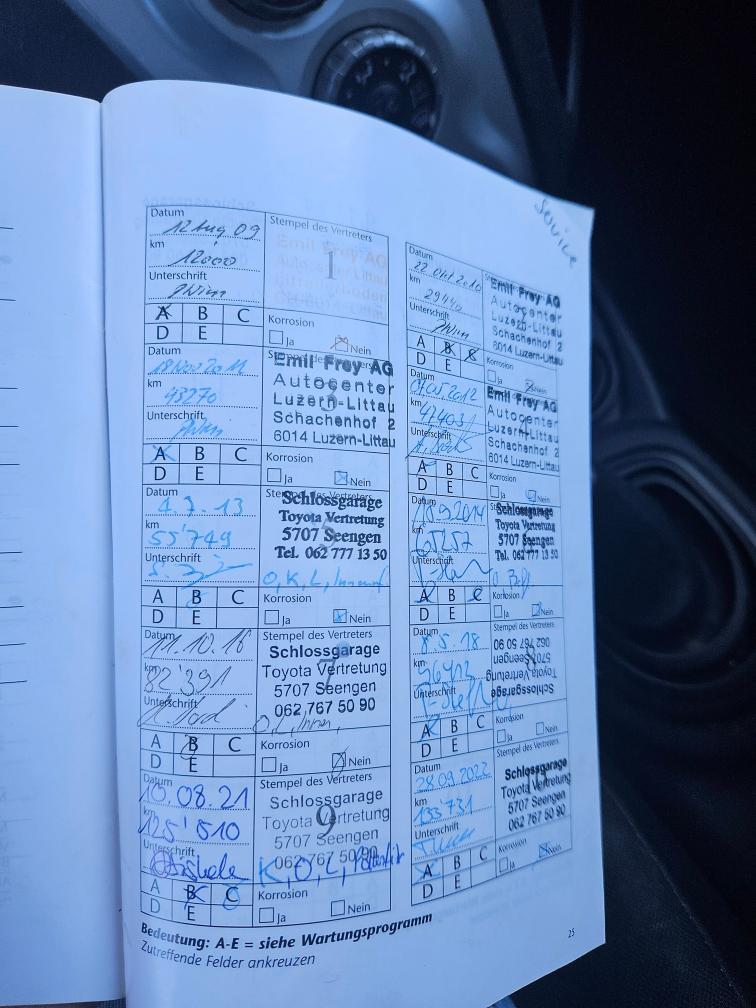 Service
Datum
12 Aug 09
km
12000
Unterschrift
Stempel des Vertreters
1
Emil Frey AG
Autocenter Littau
A B C
D E
Korrosion
Ja Nein
Datum
22 Okt 2010
km
29440
Unterschrift
Emil Frey AG
Autocenter
Luzern-Littau
Schachenhof 2
6014 Luzern-Littau
A B C
D E
Korrosion
Ja Nein
Datum
18 Nov 2011
km
43270
Unterschrift
Emil Frey AG
Autocenter
Luzern-Littau
Schachenhof 2
6014 Luzern-Littau
A B C
D E
Korrosion
Ja Nein
Datum
km
Unterschrift
Emil Frey AG
Autocenter
Luzern-Littau
Schachenhof 2
6014 Luzern-Littau
A B C
D E
Korrosion
Ja Nein
Datum
4.7.13
km
55'749
Unterschrift
Stempel des Vertreters
5
Schlossgarage
Toyota Vertretung
5707 Seengen
Tel. 062 777 13 50
O, K, L,
A B C
D E
Korrosion
Ja Nein
Datum
km
Unterschrift
Schlossgarage
Toyota Vertretung
5707 Seengen
Tel. 062 777 13 50
A B C
D E
Korrosion
Ja Nein
Datum
11.10.16
km
82'391
Unterschrift
Stempel des Vertreters
7
Schlossgarage
Toyota Vertretung
5707 Seengen
062 767 50 90
A B C
D E
Korrosion
Ja Nein
Datum
8.5.18
km
96412
Unterschrift
Stempel des Vertreters
Schlossgarage
Toyota Vertretung
5707 Seengen
062 767 50 90
A B C
D E
Korrosion
Ja Nein
Datum
10.08.21
km
125'510
Unterschrift
Stempel des Vertreters
9
Schlossgarage
Toyota Vertretung
5707 Seengen
062 767 50 90
K, O, L,
A B C
D E
Korrosion
Ja Nein
Datum
28.09.2022
km
133'731
Unterschrift
Stempel des Vertreters
Schlossgarage
Toyota Vertretung
5707 Seengen
062 767 50 90
A B C
D E
Korrosion
Ja Nein
Bedeutung: A-E = siehe Wartungsprogramm
Zutreffende Felder ankreuzen
25